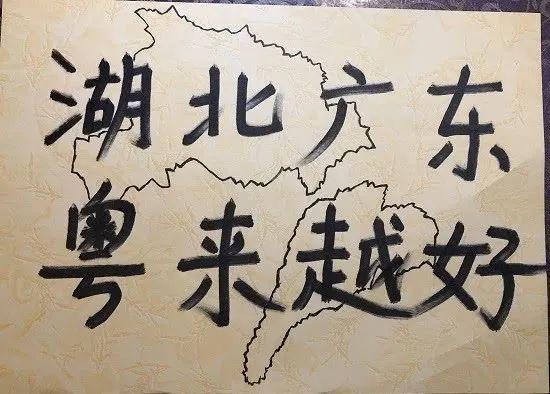 湖北广东
粤来越好